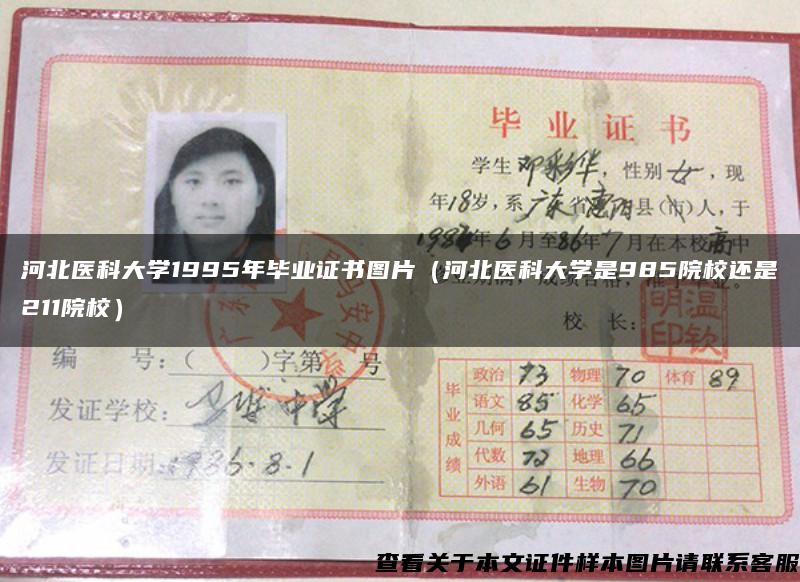 毕业证书
学生邓彩华，性别女，现
年18岁，系广东省惠阳县(市)人，于
年6月至86年7月在本校高中
河北医科大学1995年毕业证书图片（河北医科大学是985院校还是
211院校）
校 长：
温钦明印
编 号：（ ）字第 号
发证学校：马安中学
发证日期：1986.8.1
毕业成绩
政治 73 物理 70 体育 89
语文 85 化学 65
几何 65 历史 71
代数 72 地理 66
外语 61 生物 70
查看关于本文证件样本图片请联系客服